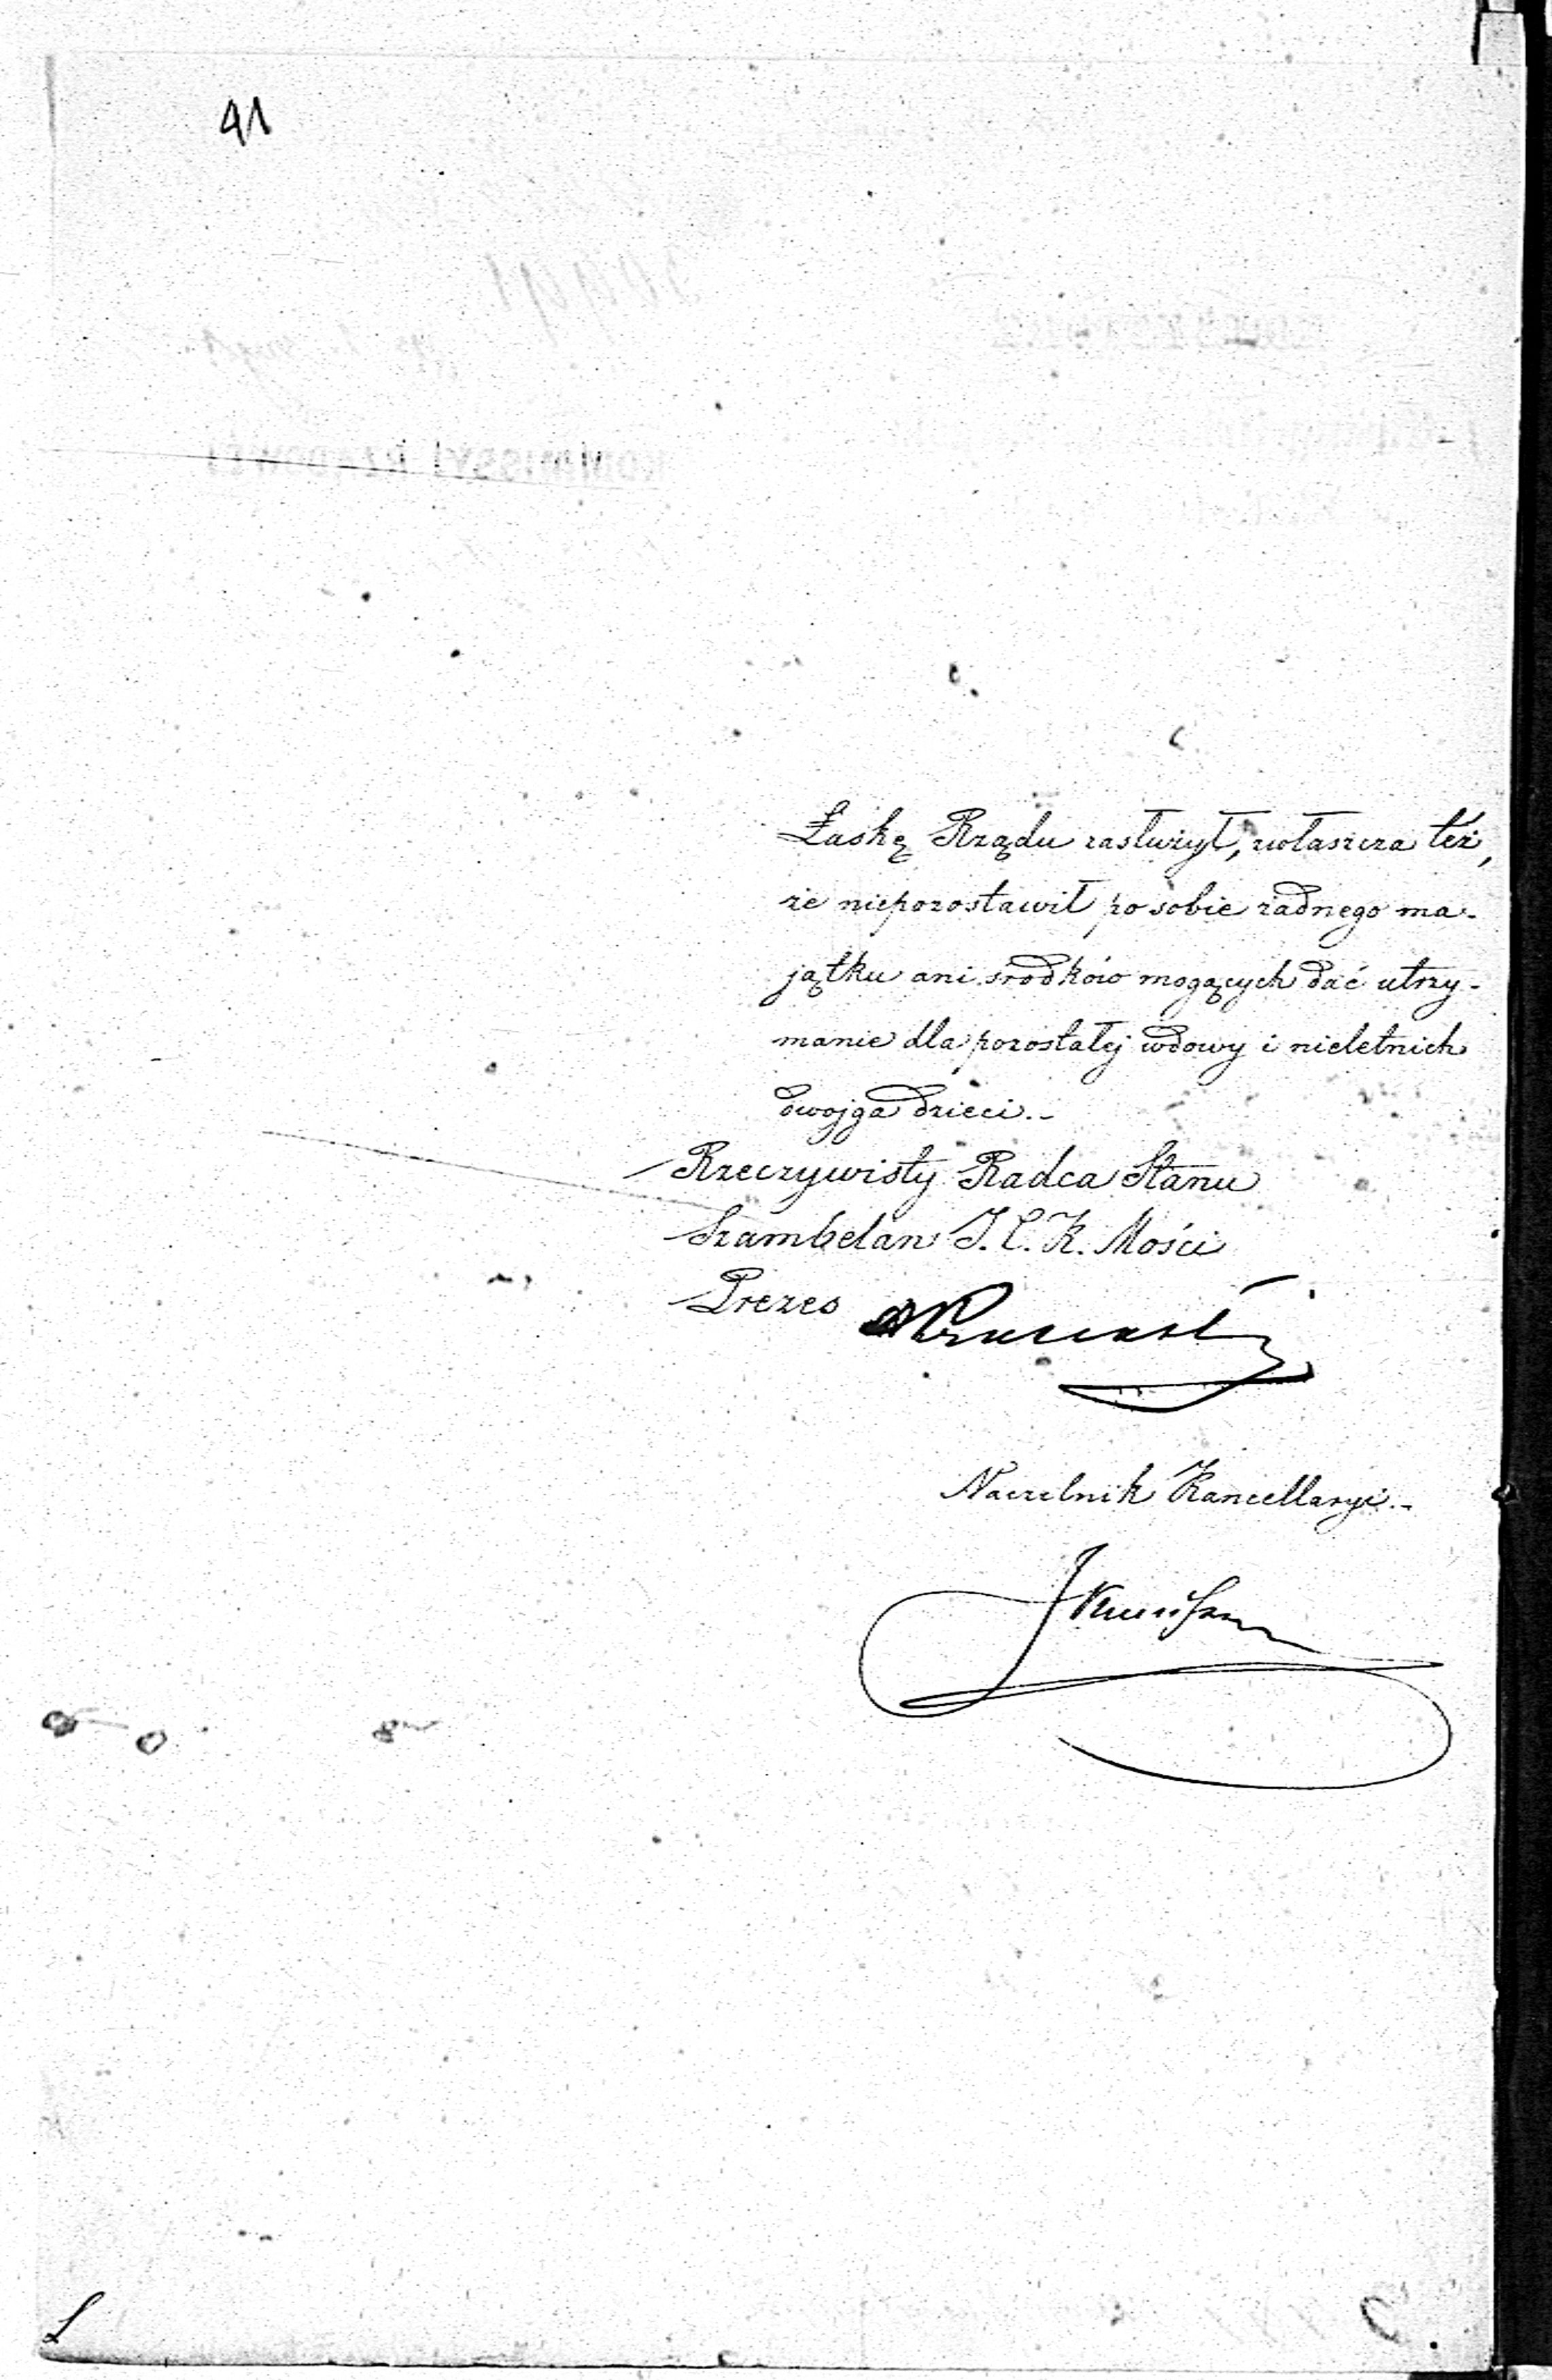 41
Łaskę Rządu zasłużył, zwłaszcza też,
że niepozostawił po sobie żadnego ma-
jątku ani środków mogących dać utrzy-
manie dla pozostałej wdowy i nieletnich
dwojga dzieci.-
Rzeczywisty Radca Stanu
Szambelan J. C. K. Mości
Prezes
Naczelnik Kancellaryi.-